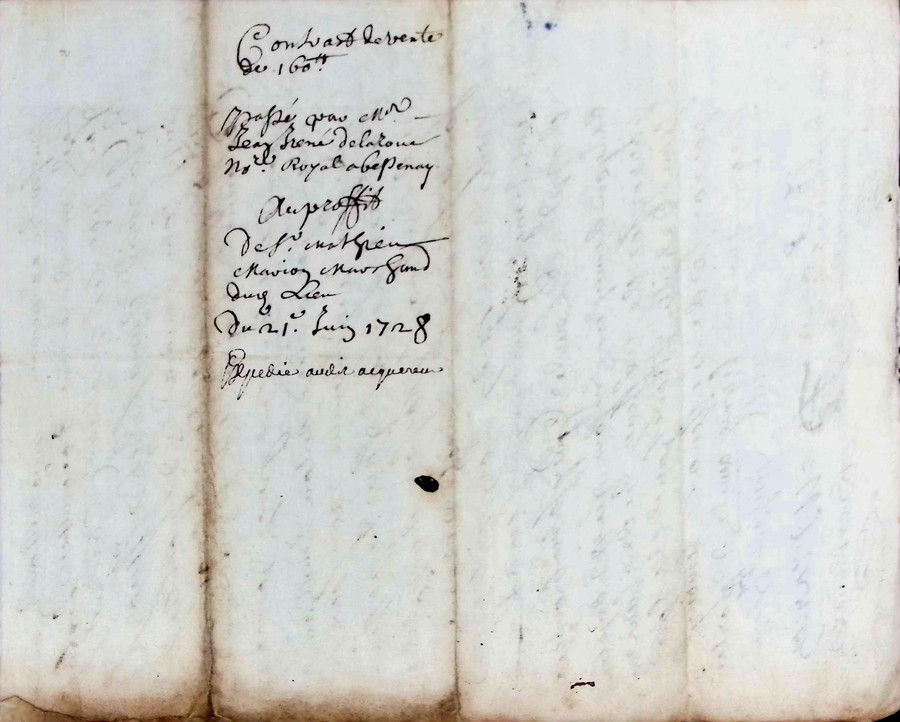 Contract de vente
de 160tt
Passé par Mr
Jean Irené delaroue
Nore Royal a bessenay
Au proffit
De Sr. Mathieu
Marion Marchand
dud Lieu
Du 21e. Juin 1728
Expedié audit acquereur